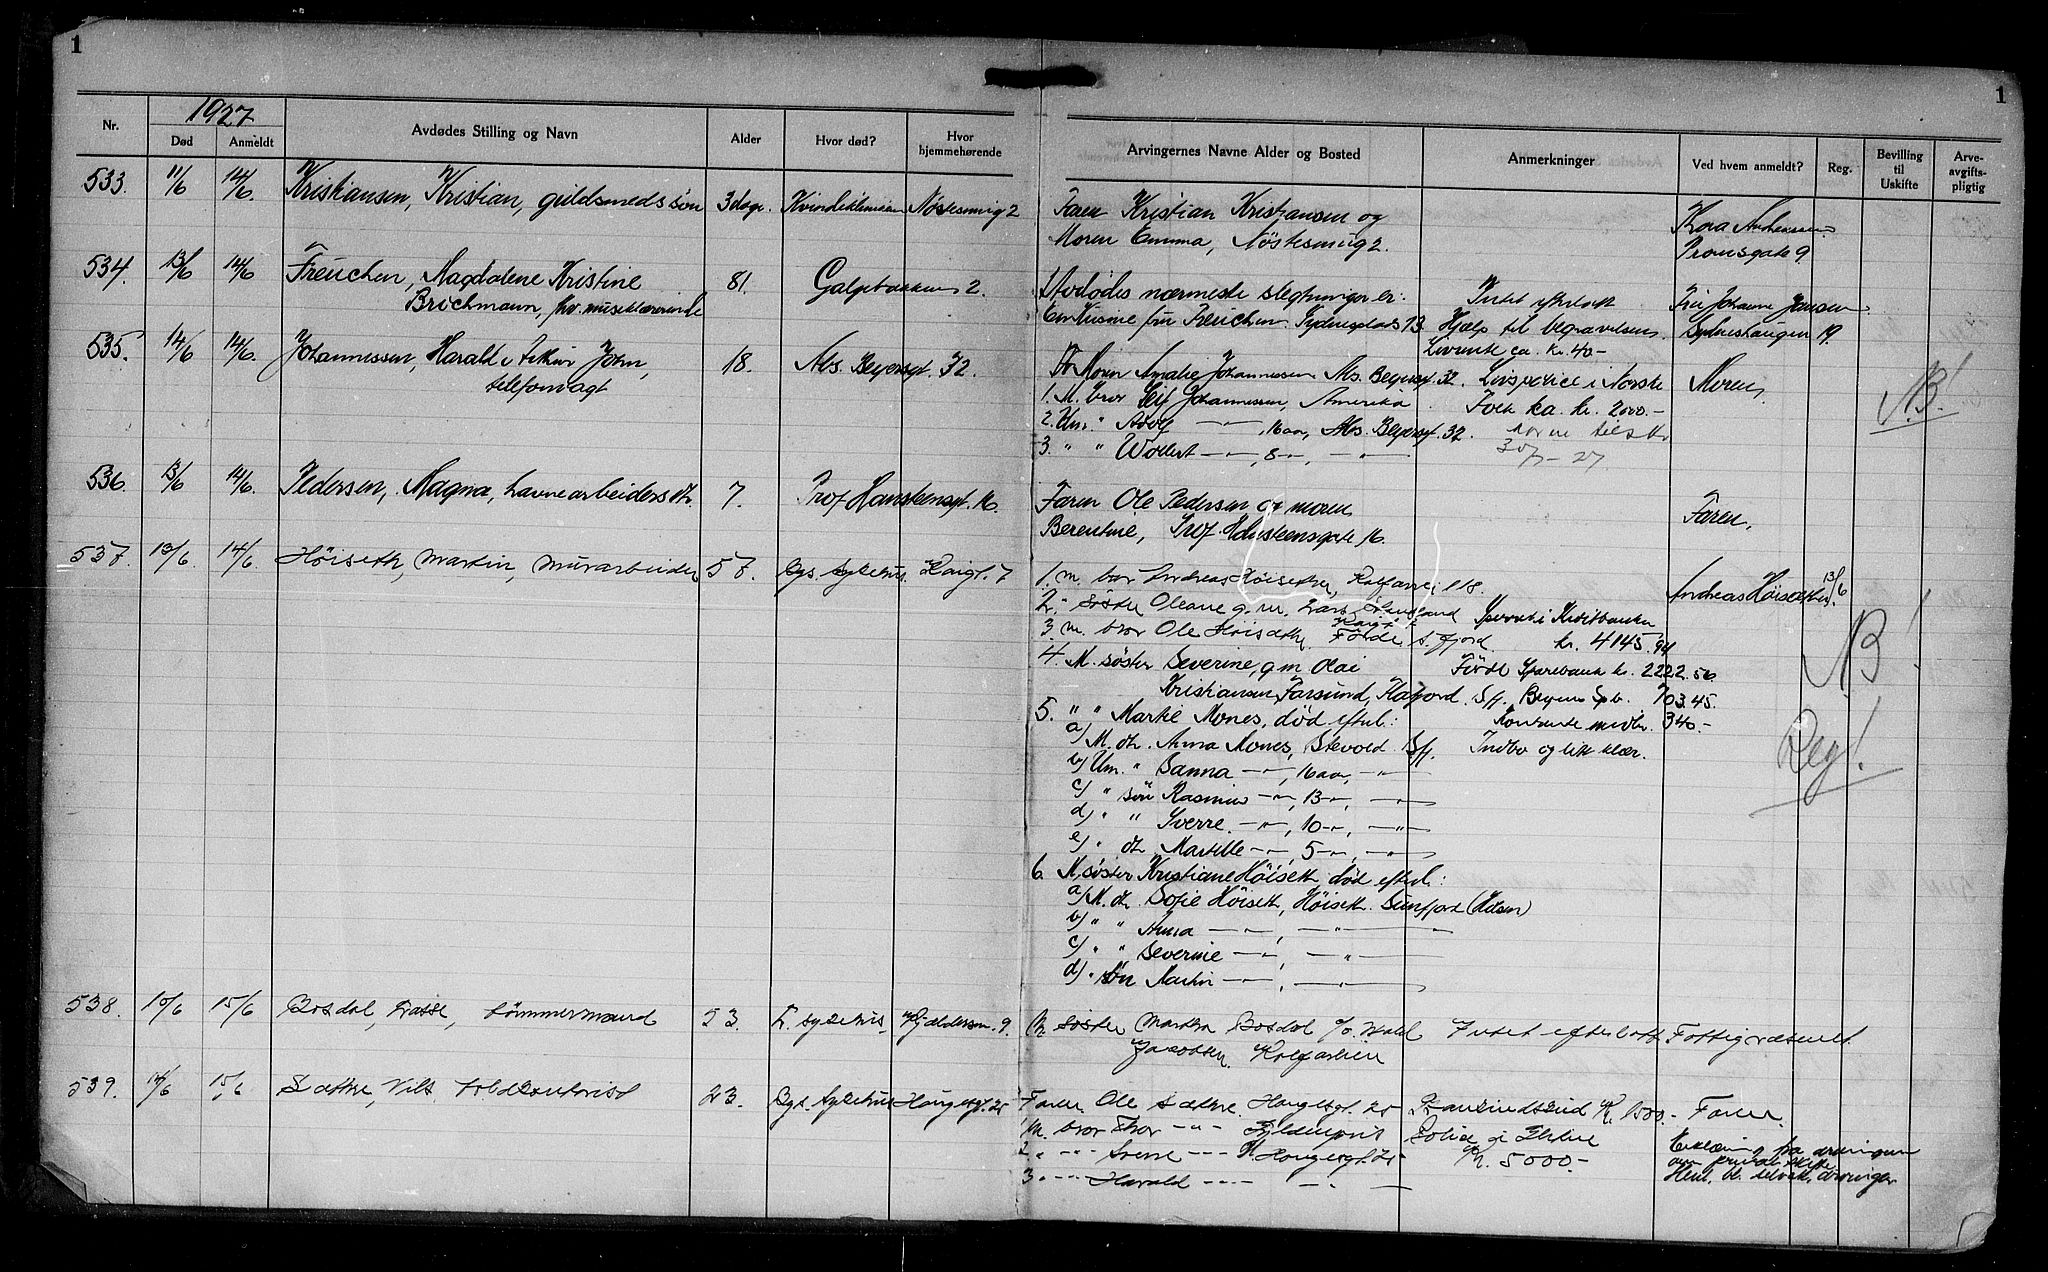 1
1
1927
Nr.
Død
Anmeldt
Avdødes Stilling og Navn
Alder
Hvor død?
Hvor hjemmehørende
Arvingernes Navne Alder og Bosted
Anmerkninger
Ved hvem anmeldt?
Reg.
Bevilling til Uskifte
Arve-avgifts-pligtig
533. 11/6 14/6. Kristiansen, Kristian, guldsmeds søn 3 dage. Kvindeklinikken Nøstesmug 2
Faren Kristian Kristiansen og
Moren Emma, Nøstesmug 2.
Kora Andreassen
Promsgate 9.
534. 13/6 14/6. Freuchen, Magdalene Kristine
Brochmann, fhv. musiklærerinde
81. Galgebakken 2.
Avdødes nærmeste slegtninger er:
En kusine fru Freuchen Sydnesplads 13.
Intet efterlatt
Hjælp til begravelsen
Livrente ca. kr. 40-
Frk Johanne Jansen
Sydneshaugen 19.
535. 14/6 14/6. Johannessen, Harald Arthur John,
telefonvagt
18. Abs. Beyersgt. 32.
Moren Amalie Johannessen Abs. Beyersgt. 32.
1. M. bror Leif Johannessen, Amerika
2. Um. " Adolf -"-, 16 aar, Abs. Beyersgt. 32.
3. " " Wollert -"-, 8 -"-, -"-
Livspolice i Norske
Folk ka. kr. 2000.-
30/7-27
Moren,
NB!
536. 13/6 14/6. Pedersen, Magna, havnearbeiders dtr. 7. Prof Hansteensgt. 16.
Faren Ole Pedersen og moren
Berentine, Prof. Hansteensgate 16.
Faren,
537. 13/6 14/6. Höiseth, Martin, murarbeider 57. Bgs. sykehus. Kongt. 7
1. m. bror Andreas Höiseth, Kalfarvei 118.
2. " søster Oleane g. m. Lars
3. m. bror Ole Höiseth, Förde S. fjord.
4. M. søster Severine, g m Olai
Kristiansen, Farsund,
5. " " Martie Mones, død efterl:
a) M. dtr. Anna Mones, Stevold. S.fj.
b) Um. " Sanna -"-, 16 aar, -"-
c) " søn Rasmus -"-, 13 -"-, -"-
d) " " Sverre. -"-, 10 -"-, -"-
e) " dtr. Martelle -"-, 5 -"-, -"-
6. M. søster Kristiane Höiseth død efterl:
a) M. dtr. Sofie Höiseth, Höiseth. Sunnfjord (Holsen)
b) " " Anna -"-, -"-
c) " " Severine -"-, -"-
d) " søn Martin -"-, -"-
Kreditbanken
kr. 4145.94
Förde Sparebank kr. 2222.56
Bergens Spb. 703.45.
Kontante midler 340.-
Indbo og litt klær.
Andreas Höiseth
13/6
NB!
Reg!
538. 10/6 15/6 Bosdal, Lasse, tömmermand 53. L. sykehus,
M. søster Martha Bosdal c/o Wald.
Jacobsen Kalfarlien
Intet efterlatt
Fattigvæsenet
539. 14/6 15/6 Sæthre, Nils 23. Bgs. sykehus Haugesgt. 25
Faren Ole Sæthre. Haugesgt. 25
1 m. bror Thor -"-
2. " -"- Sverre -"- Haugesgt. 25
3. " -"- Harald -"- -"-
Kr. 1500.-
Kr. 5000.-
Faren
Erklæring fra arvingerne
om privat skifte